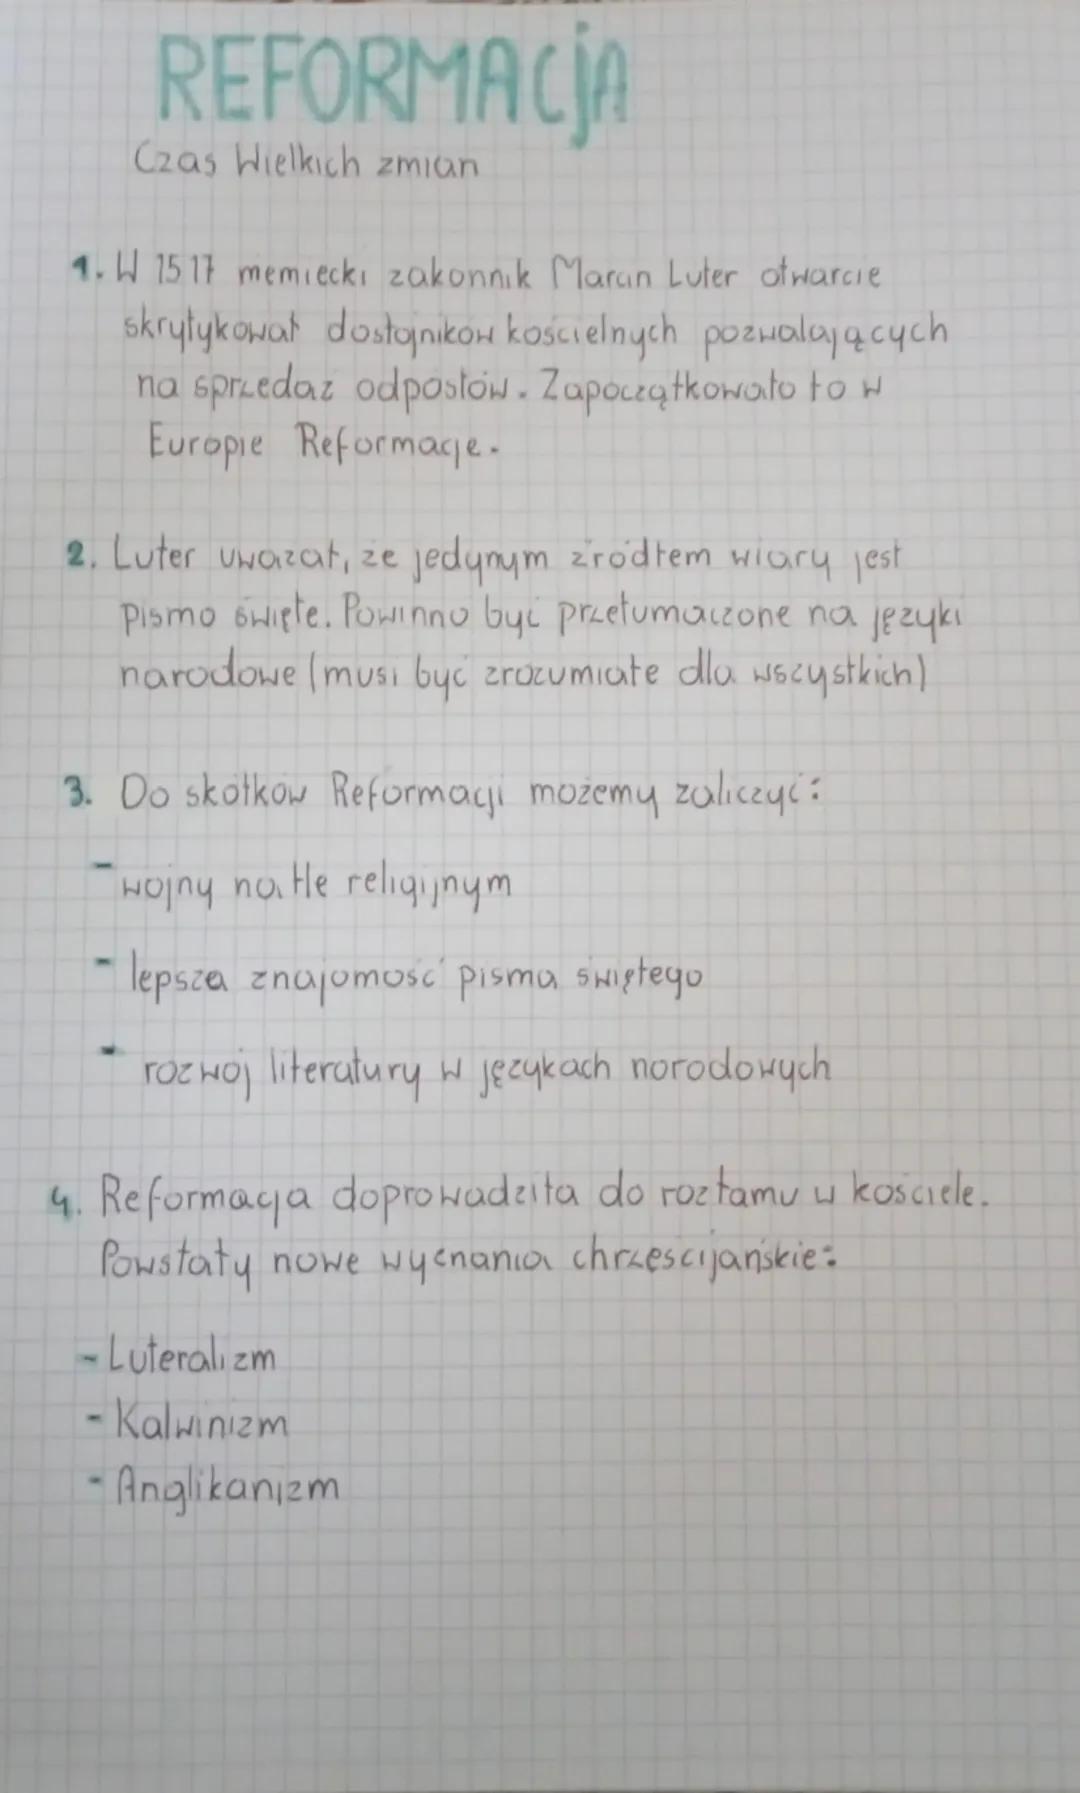 REFORMACJA
Czas Wielkich zmian
1. W 1517 niemiecki zakonnik Marcin Luter otwarcie
skrytykował dostojników kościelnych pozwalających
na sprzedaż odpostów. Zapoczątkowało to w
Europie Reformację.
2. Luter uważał, że jedynym źródłem wiary jest
Pismo święte. Powinno być przetumaczone na języki
narodowe (musi być zrozumiałe dla wszystkich)
3. Do skótków Reformacji możemy zaliczyć:
- wojny na tle religijnym
- lepsza znajomość pisma świętego
- rozwój literatury w językach norodowych
4. Reformacja doprowadziła do rozłamu w kościele.
Powstały nowe wyznania chrześcijańskie:
- Luteralizm
- Kalwinizm
- Anglikanizm